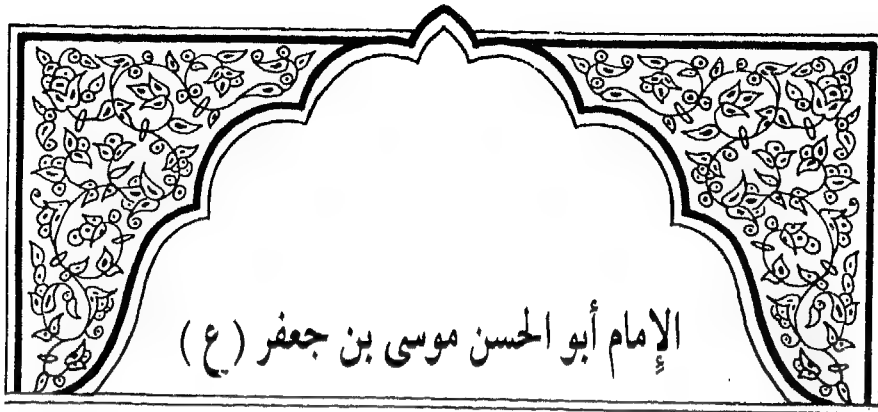 الإمام أبو الحسن موسى بن جعفر (ع)